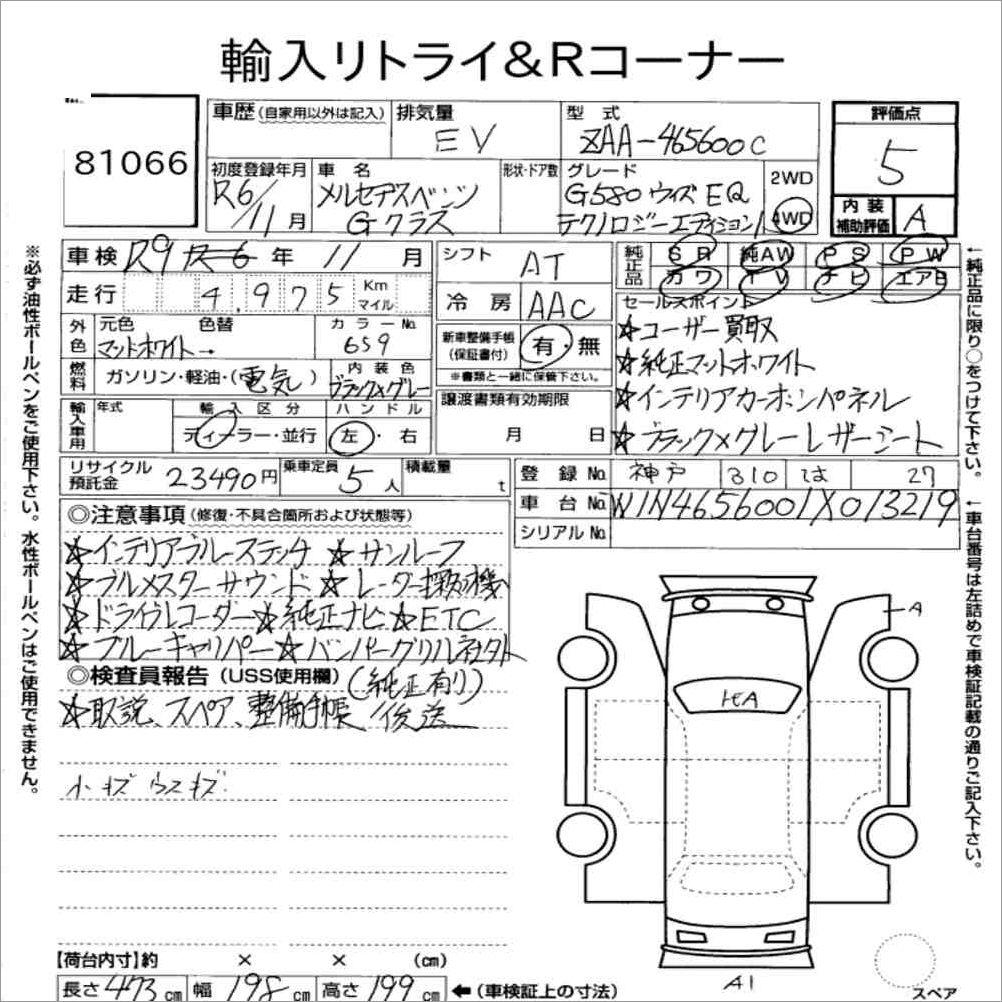 輸入リトライ&Rコーナー
81066
車歴(自家用以外は記入)
排気量
EV
型式
ZAA-465600C
評価点
5
内装補助評価
A
初度登録年月
R6/11月
車名
メルセデスベンツ
Gクラス
形状・ドア数
グレード
G580ウィズEQ
テクノロジーエディション1
2WD
4WD
車検 R9 R6年 11月
シフト
AT
純正品
SR 純AW PS PW
カワ TV ナビ エアB
走行 4,975 Km マイル
冷房 AAC
セールスポイント
☆ユーザー買取
☆純正マットホワイト
☆インテリアカーボンパネル
☆ブラック×グレーレザーシート
外色
元色 色替
マットホワイト→
カラーNo.
659
新車整備手帳(保証書付)
有・無
※書類と一緒に保管下さい。
燃料
ガソリン・軽油・(電気)
内装色
ブラック×グレー
譲渡書類有効期限
月 日
輸入車用
年式
輸入区分
ディーラー・並行
ハンドル
左・右
リサイクル預託金 23490円
乗車定員 5人
積載量 t
登録No. 神戸 310 は 27
車台No. W1N4656001X013219
シリアルNo.
◎注意事項(修復・不具合箇所および状態等)
☆インテリアブルーステッチ ☆サンルーフ
☆ブルメスターサウンド ☆レーダー探知機
☆ドライブレコーダー☆純正ナビ☆ETC
☆ブルーキャリパー☆バンパーグリル社外
(純正有り)
◎検査員報告(USS使用欄)
☆取説、スペア、整備手帳/後送
小キズ ウスキズ
A
ヒA
A1
スペア
【荷台内寸】約 × × (cm)
長さ 473cm 幅 198cm 高さ 199cm ←(車検証上の寸法)
※必ず油性ボールペンをご使用下さい。水性ボールペンはご使用できません。
←純正品に限り○をつけて下さい。
←車台番号は左詰めで車検証記載の通りご記入下さい。